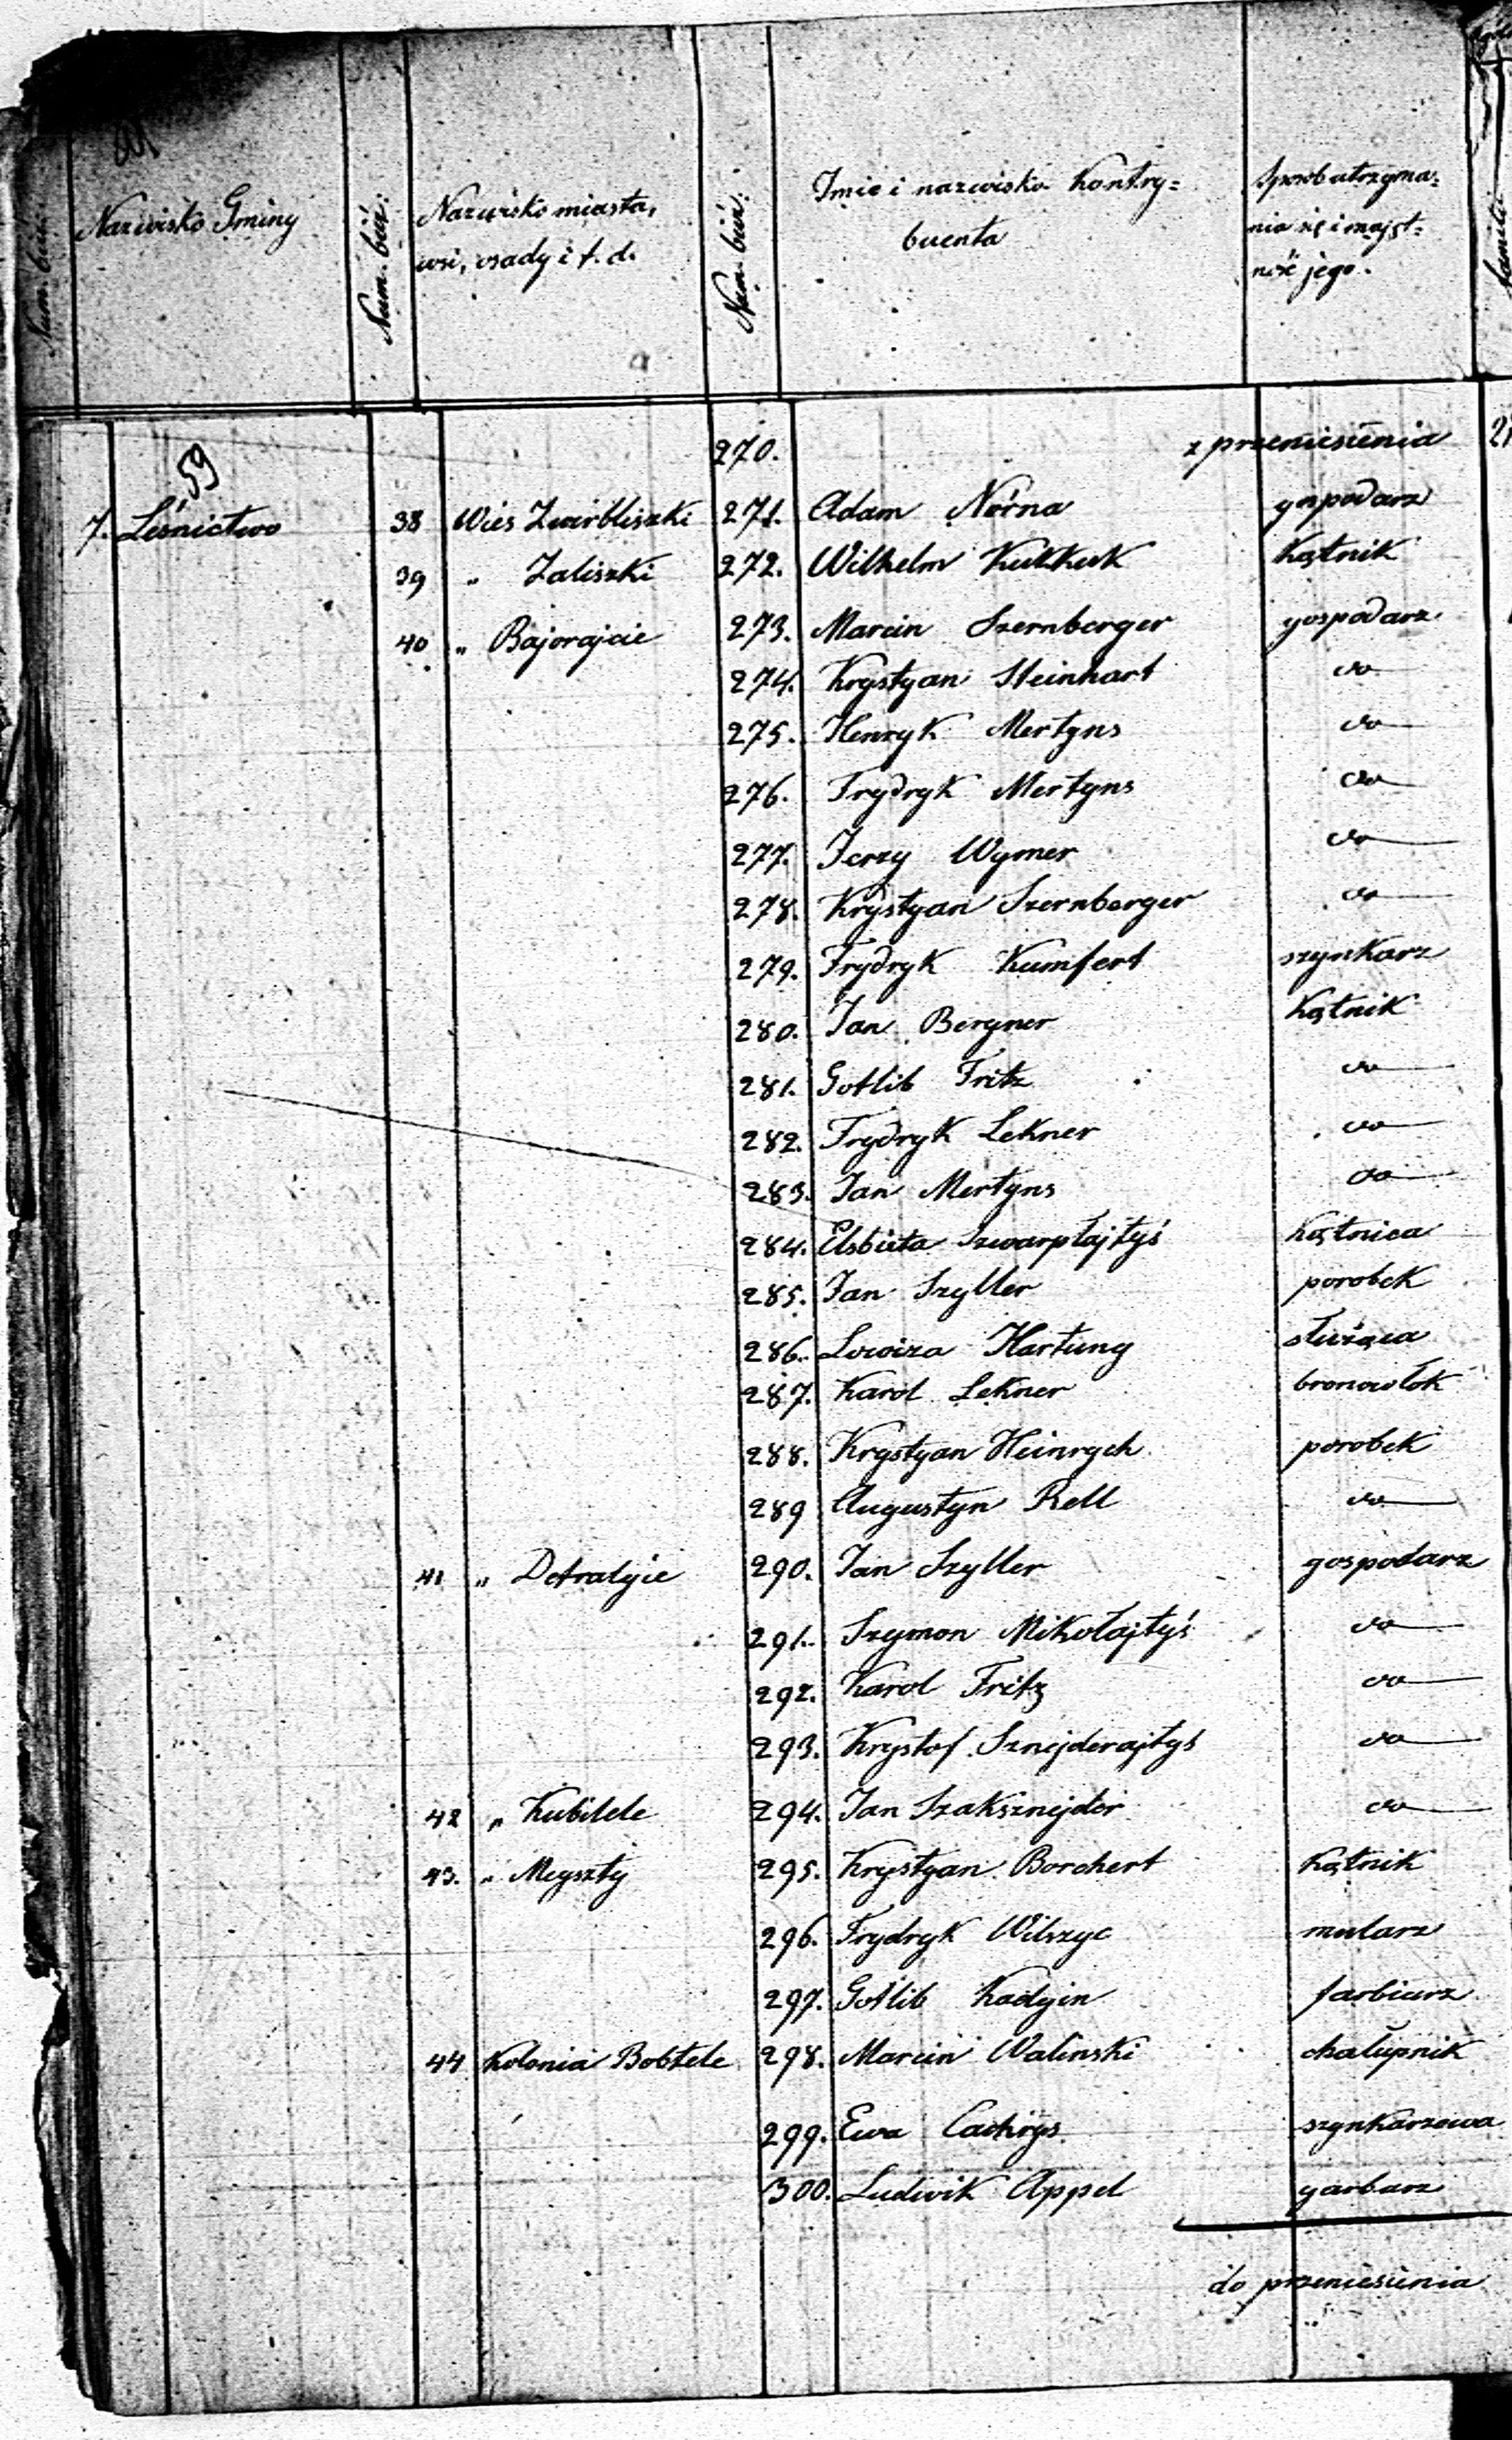 Num. bież:
Nazwisko Gminy
Num. bież:
Nazwisko miasta,
wsi, osady i t. d.
Num. bież:
Imie i nazwisko Kontry=
buenta
Sposob utrzyma=
nia się i majęt=
ność jego.
270. z przeniesienia
59
7. Leśnictwo 38 Wieś Zwirbliszki 271. Adam Norna gospodarz
39 " Zaliszki 272. Wilhelm Kukkuk Kątnik
40 " Bajorajcie 273. Marcin Szernberger gospodarz
274. Krystyan Steinhart do
275. Henryk Mertyns do
276. Frydryk Mertyns do
277. Jerzy Wymer do
278. Krystyan Szernberger do
279. Frydryk Kumfert szynkarz
280. Jan Bergner Kątnik
281. Gotlib Fritz do
282. Frydryk Lekner do
283. Jan Mertyns do
284. Elsbieta Szwarpłajtyś Kątnica
285. Jan Szyller porobek
286. Lowiza Hartung służąca
287. Karol Lekner bronowłok
288. Krystyan Heinrych porobek
289 Augustyn Rell do
41 " Dotralyie 290. Jan Szyller gospodarz
291. Szymon Mikołajtyś do
292. Karol Fritz do
293. Krystof Sznejderajtys do
42 " Kubilele 294. Jan Szaksznejder do
43. " Meyszty 295. Krystyan Borchert Kątnik
296. Frydryk Wilszyc mularz
297. Gotlib Kadgin farbiarz
44 Kolonia Bobtele 298. Marcin Walinski chałupnik
299. Ewa Cachrys szynkarzowa
300. Ludwik Appel garbarz
do przeniesienia